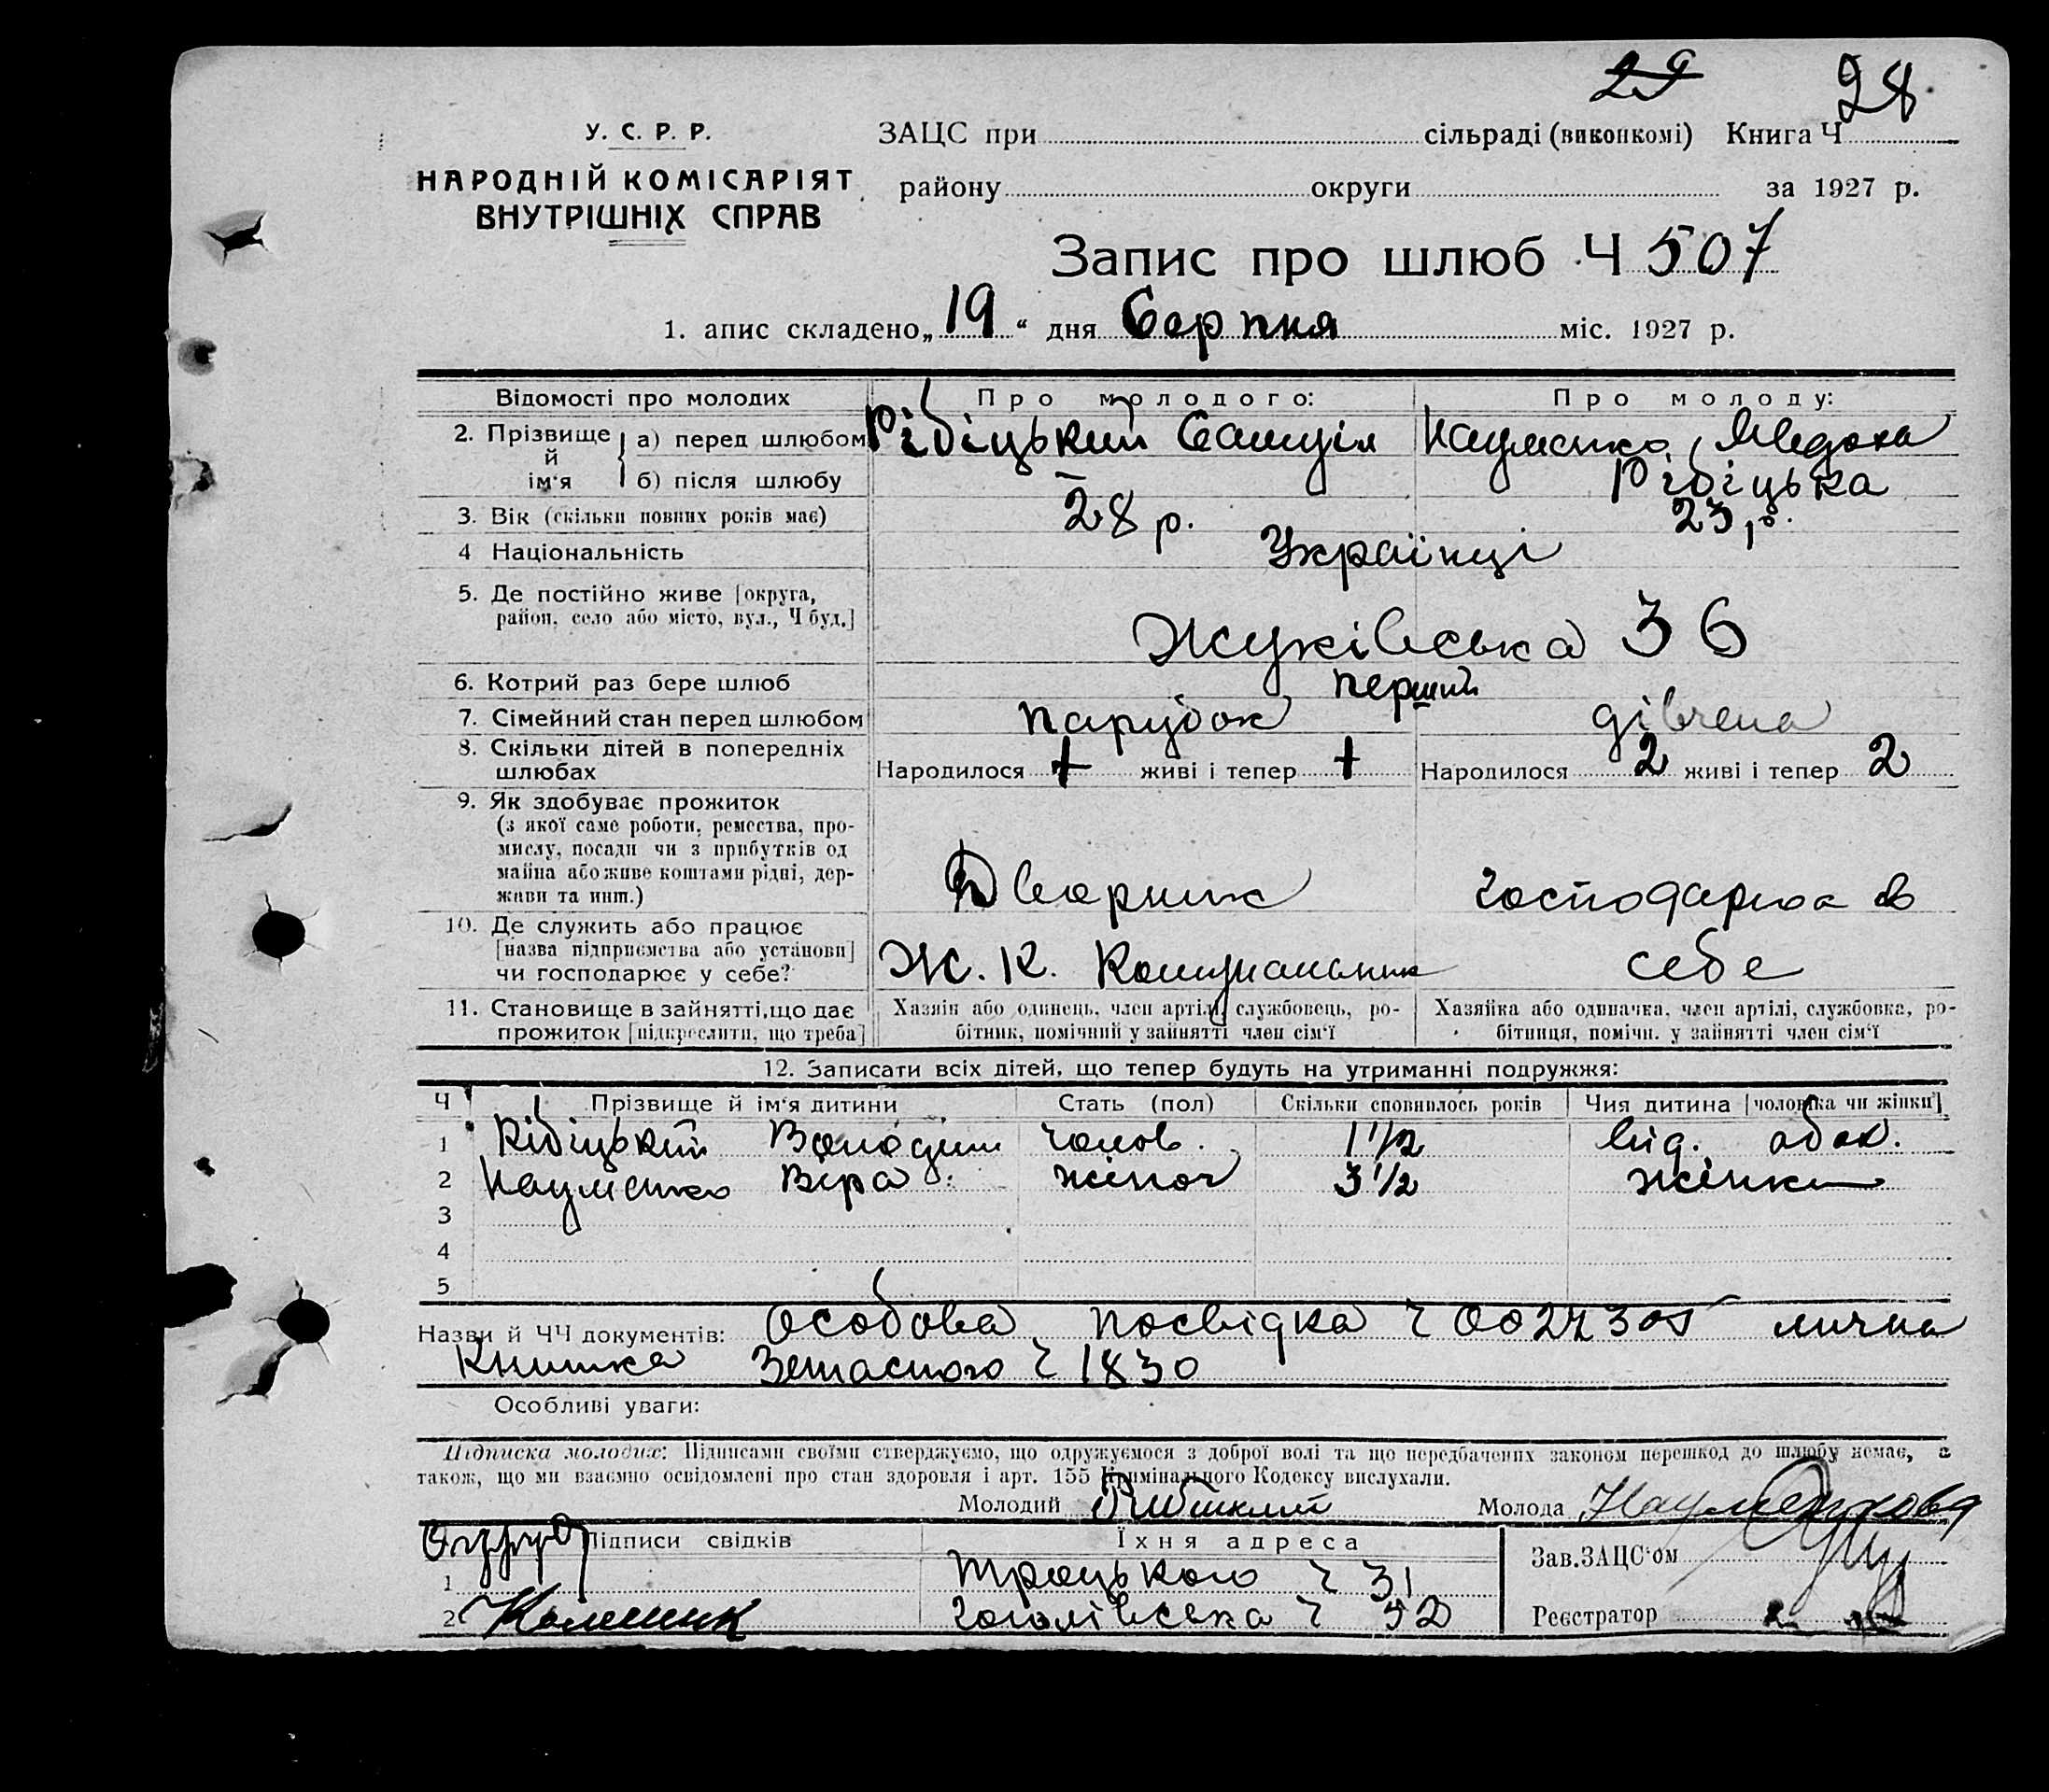 29 28
У. С. Р. Р.
НАРОДНІЙ КОМІСАРІЯТ
ВНУТРІШНІХ СПРАВ
ЗАЦС при сільраді (виконкомі) Книга Ч
району округи за 1927 р.
Запис про шлюб Ч 507
1. апис складено „19“ дня Серпня міс. 1927 р.
Відомості про молодих Про молодого: Про молоду:
2. Прізвище й ім‘я а) перед шлюбом Рібіцький Самуіл Науменко
б) після шлюбу — Рібіцька
3. Вік (скільки повних років має) 28 р. 23 р.
4 Національність Українці
5. Де постійно живе [округа,
район, село або місто, вул., Ч буд.] Жуківська 36
6. Котрий раз бере шлюб перший
7. Сімейний стан перед шлюбом парубок дівчена
8. Скільки дітей в попередніх
шлюбах Народилося + живі і тепер + Народилося 2 живі і тепер 2
9. Як здобуває прожиток
(з якої саме роботи, ремества, про-
мислу, посади чи з прибутків од
майна або живе коштами рідні, дер-
жави та инш.) Дворник господарює в
10. Де служить або працює
[назва підприємства або установи]
чи господарює у себе? Ж. К. Комунальник себе
11. Становище в зайнятті, що дає
прожиток [підкреслити, що треба]
Хазяїн або одинець, член артілі, службовець, ро-
бітник, помічний у зайнятті член сім‘ї
Хазяйка або одиначка, член артілі, службовка, ро-
бітниця, помічн. у зайнятті член сім‘ї
12. Записати всіх дітей, що тепер будуть на утриманні подружжя:
Ч Прізвище й ім‘я дитини Стать (пол) Скільки сповнилось років Чия дитина [чоловіка чи жінки]
1 Рібіцький Володим чолов. 1 1/2 від. обох.
2 Науменко Віра жіноч 3 1/2 жінки
3
4
5
Назви й ЧЧ документів: Особова посвідка ч лична
Книжка ч 1830
Особливі уваги:
Підписка молодих: Підписами своїми стверджуємо, що одружуємося з доброї волі та що передбачених законом перешкод до шлюбу немає, а
також, що ми взаємно освідомлені про стан здоровля і арт. 155 Кримінального Кодексу вислухали.
Молодий Молода Науменкова
Підписи свідків Їхня адреса Зав. ЗАЦС‘ом
1 Троцького ч 31
2 Гоголівська ч 32 Реєстратор